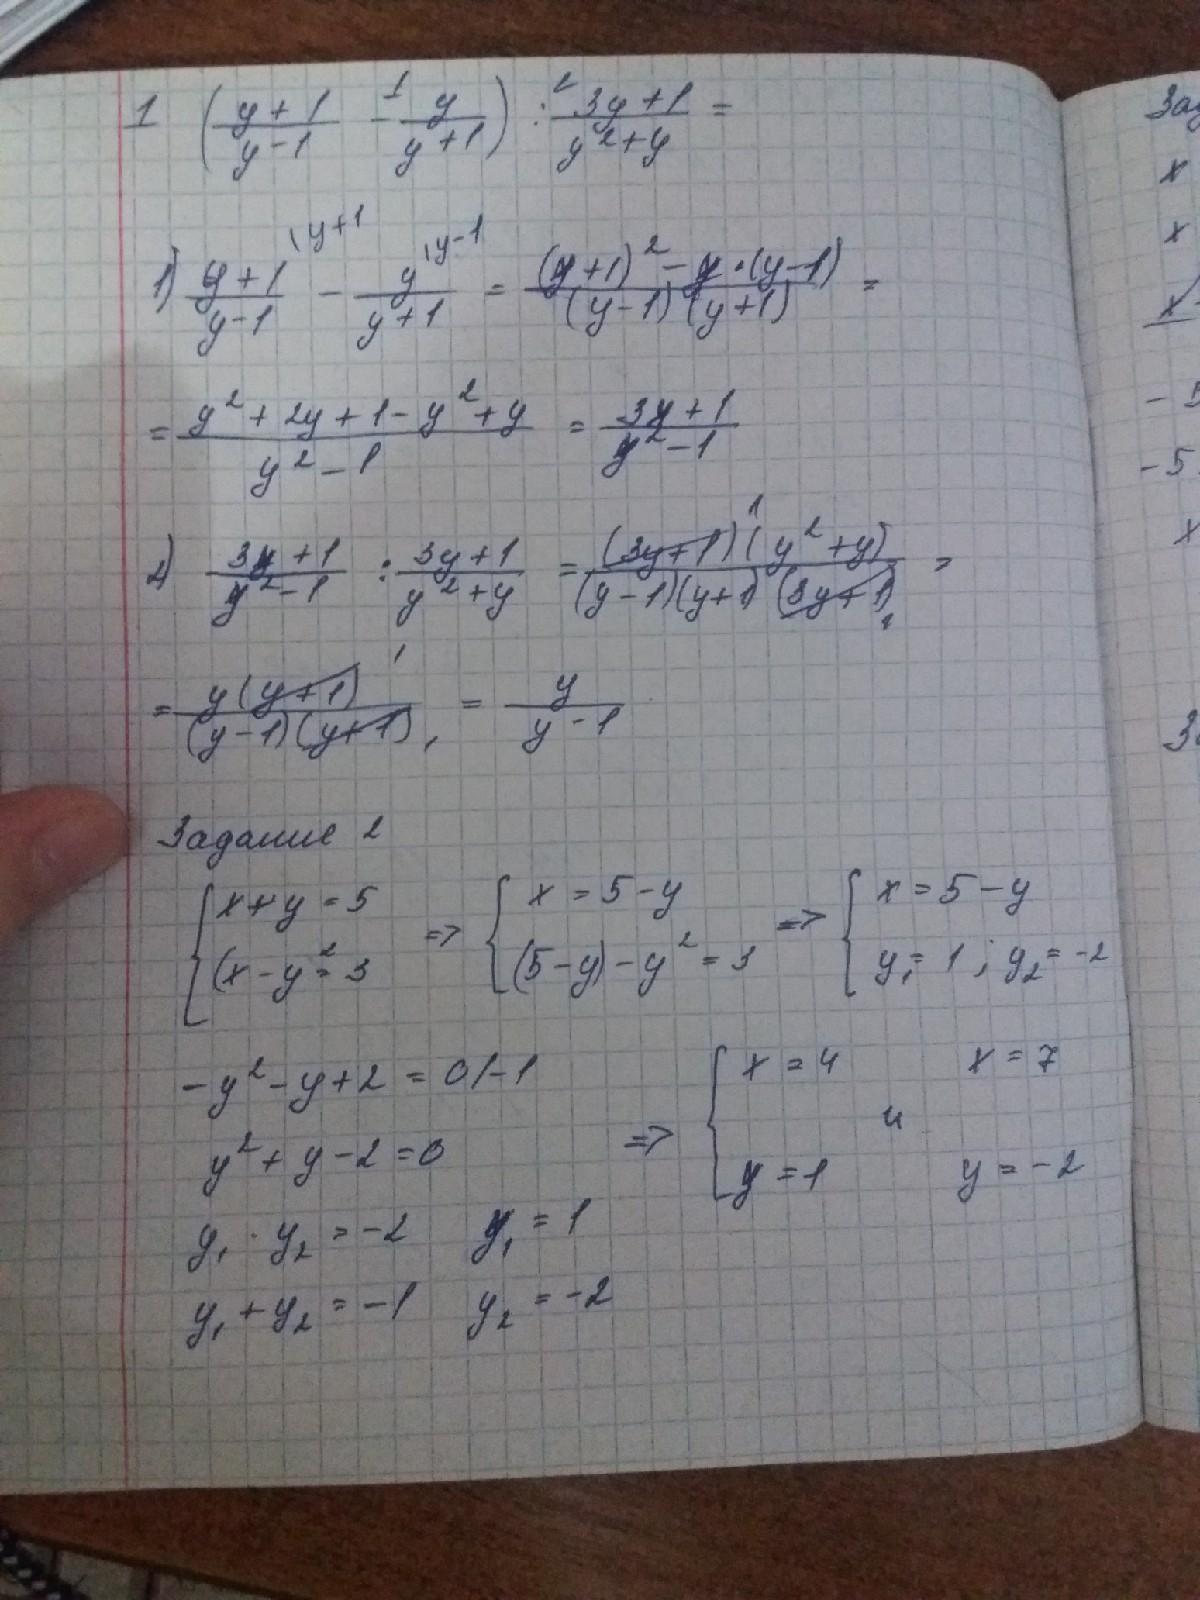 1 ( (y+1)/(y-1) - y/(y+1) ) : (3y+1)/(y²+y) =
1) (y+1)/(y-1) \y+1 - y/(y+1) \y-1 = ((y+1)² - y·(y-1))/((y-1)(y+1)) =
= (y²+2y+1-y²+y)/(y²-1) = (3y+1)/(y²-1)
2) (3y+1)/(y²-1) : (3y+1)/(y²+y) = ((3y+1)(y²+y))/((y-1)(y+1)(3y+1)) =
= (y(y+1))/((y-1)(y+1)) = y/(y-1)
Задание 2
{ x+y=5 => { x=5-y => { x=5-y
(x-y²=3 (5-y)-y²=3 y₁=1; y₂=-2
-y²-y+2=0/-1
y²+y-2=0
y₁·y₂=-2 y₁=1
y₁+y₂=-1 y₂=-2
=> { x=4 и x=7
y=1 y=-2
x
x
x
-5
x